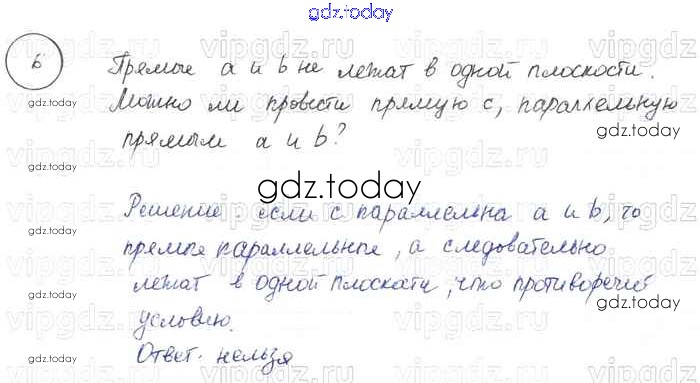 gdz.today
6
Прямые a и b не лежат в одной плоскости.
Можно ли провести прямую c, параллельную
прямым a и b?
Решение: если c параллельна a и b, то
прямые параллельные, а следовательно
лежат в одной плоскати, что противоречит
условию.
Ответ: нельзя
vipgdz.ru
gdz.today
gdz.today
gdz.today
gdz.today
gdz.today
gdz.today
gdz.today
gdz.today